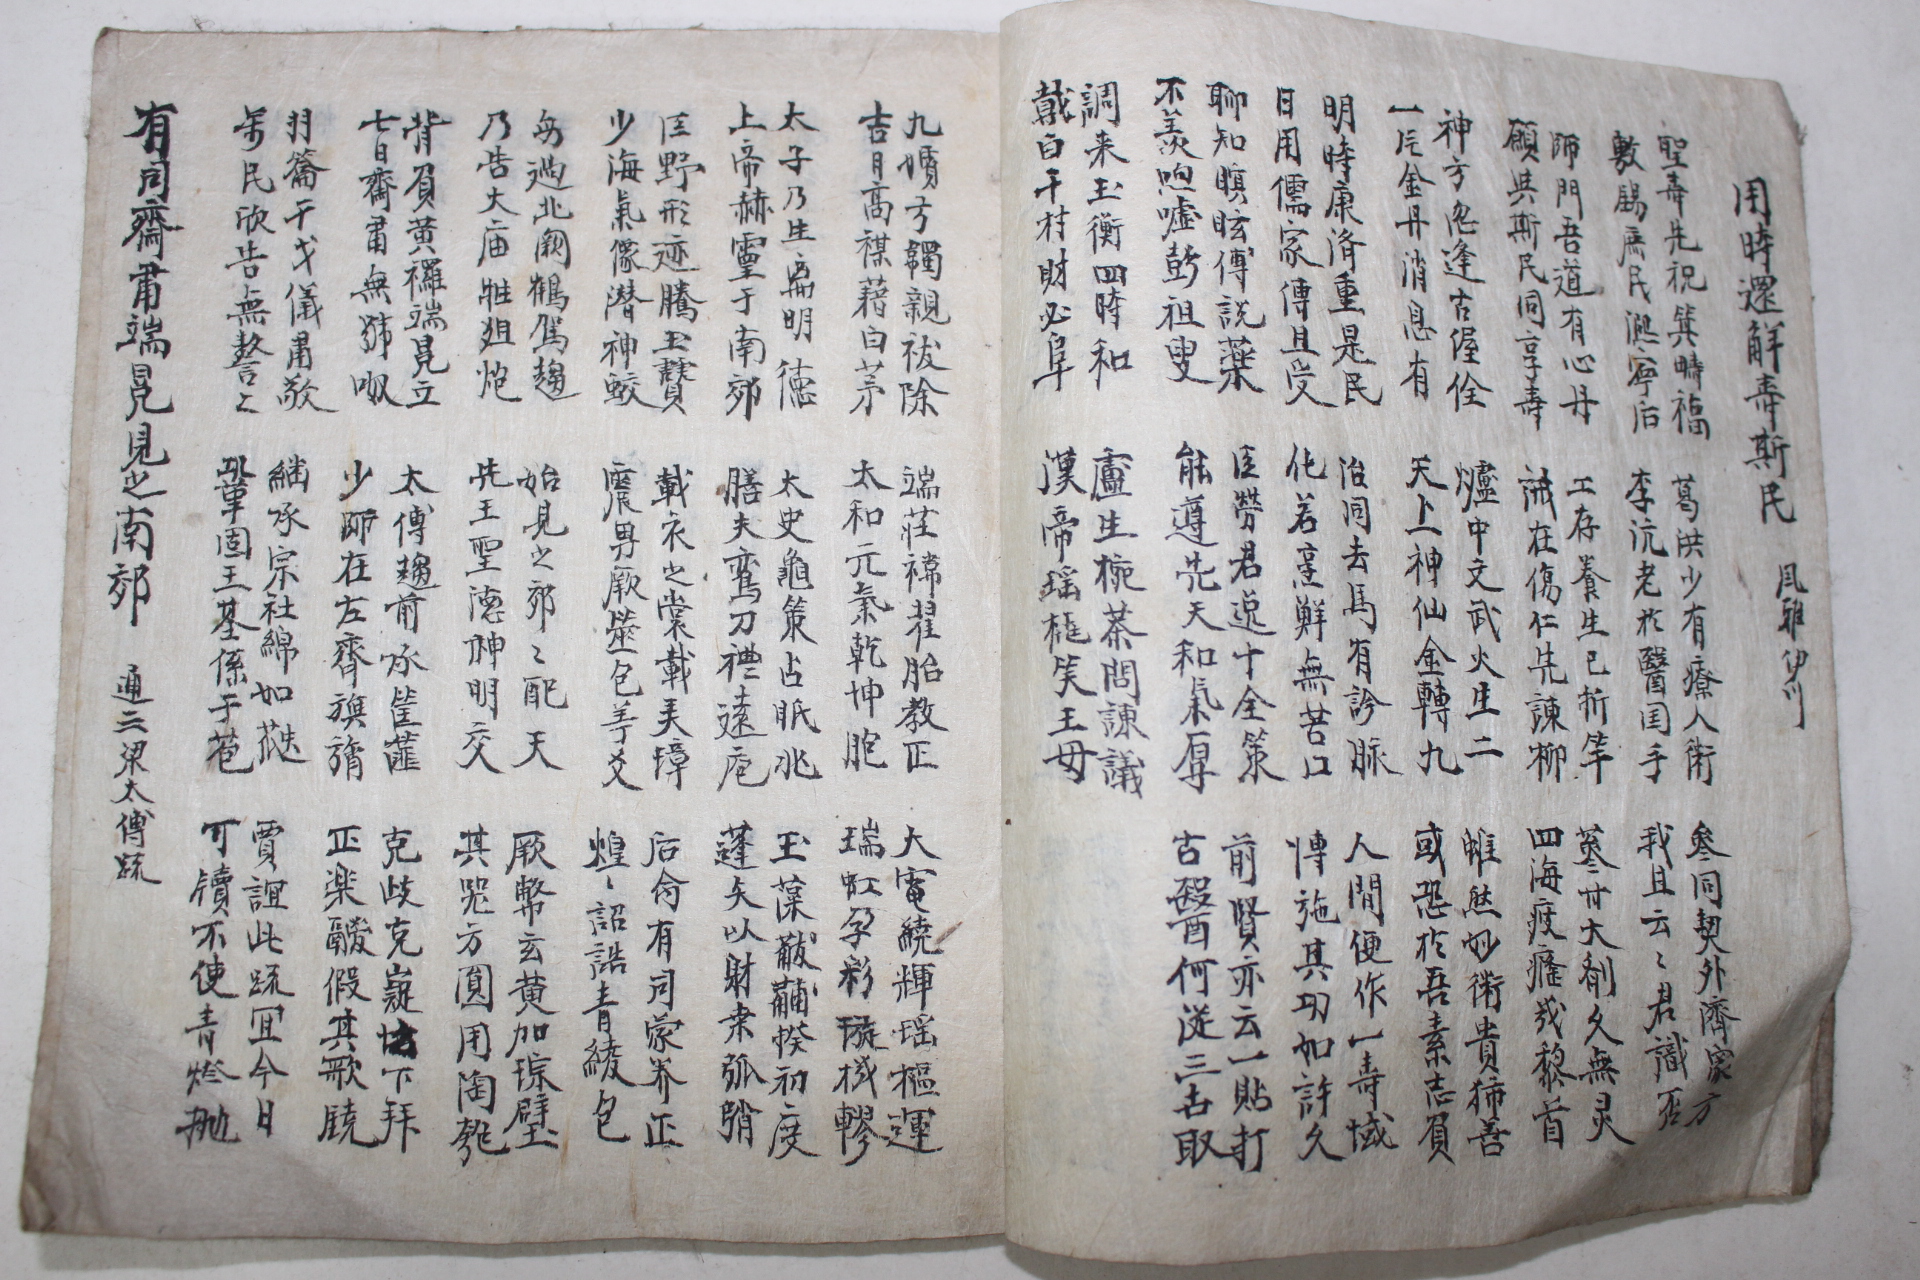 用時還解壽斯民 風雅伊川
聖壽先祝箕疇福
敷賜庶民寧后
葛洪少有療人術
李沆老於醫国手
參同契外濟家方
我且云〻君識否
師門吾道有心丹
願與斯民同享壽
工存養生已折竿
誡在傷仁先諫柳
大剤久無灵
四海疲癃幾黎首
神方忽逢古偓佺
一片金丹消息有
爐中文武火生二
天上神仙金轉九
雖然妙術貴施善
或恐於吾素志負
明時康済重是民
日用儒家傳且受
治同去馬有診脉
化若烹鮮無苦口
人間便作一壽域
博施其功如許久
聊知瞑眩傅說藥
不羨呴噓彭祖叟
医勞君十全策
能遵先天和氣厚
前賢亦云一貼打
古醫何從三古取
調来玉衡四時和
戴白千村財必阜
盧生椀茶問諫議
漢帝瑶笑王母
九嬪方韣親祓除
吉月高禖藉白茅
端莊褘翟胎教正
太和元氣乾坤胞
大電繞輝瑶樞運
瑞虹孕彩璇轇
太子乃生明德
上帝赫靈于南郊
太史龜策占眡兆
膳夫鸞刀禮遠庖
玉藻黻黼揆初度
蓬矢以射桑弧弰
野形迹騰玉
少海氣像潛神蛟
載衣之裳載美璋
震男厥筮包爻
后命有司蒙养正
煌〻詔誥青綾包
每過北闕鶴駕趨
乃告大庙牲俎炮
始見之郊〻配天
先王聖德神明交
厥幣玄黄加琮璧
其器方圓用陶匏
背負黄端冕立
七日齋肅無號呶
太傅趨前承筐篚
少師在左齊旗旓
克歧克嶷下拜
正楽假其歌
羽籥干戈儀肅敬
万民欣告無謷〻
繼承宗社綿如瓞
鞏固王基係于苞
賈誼此疏宜今日
可牘不使青燈抛
有司齋肅端冕見之南郊 通三梁太傅疏